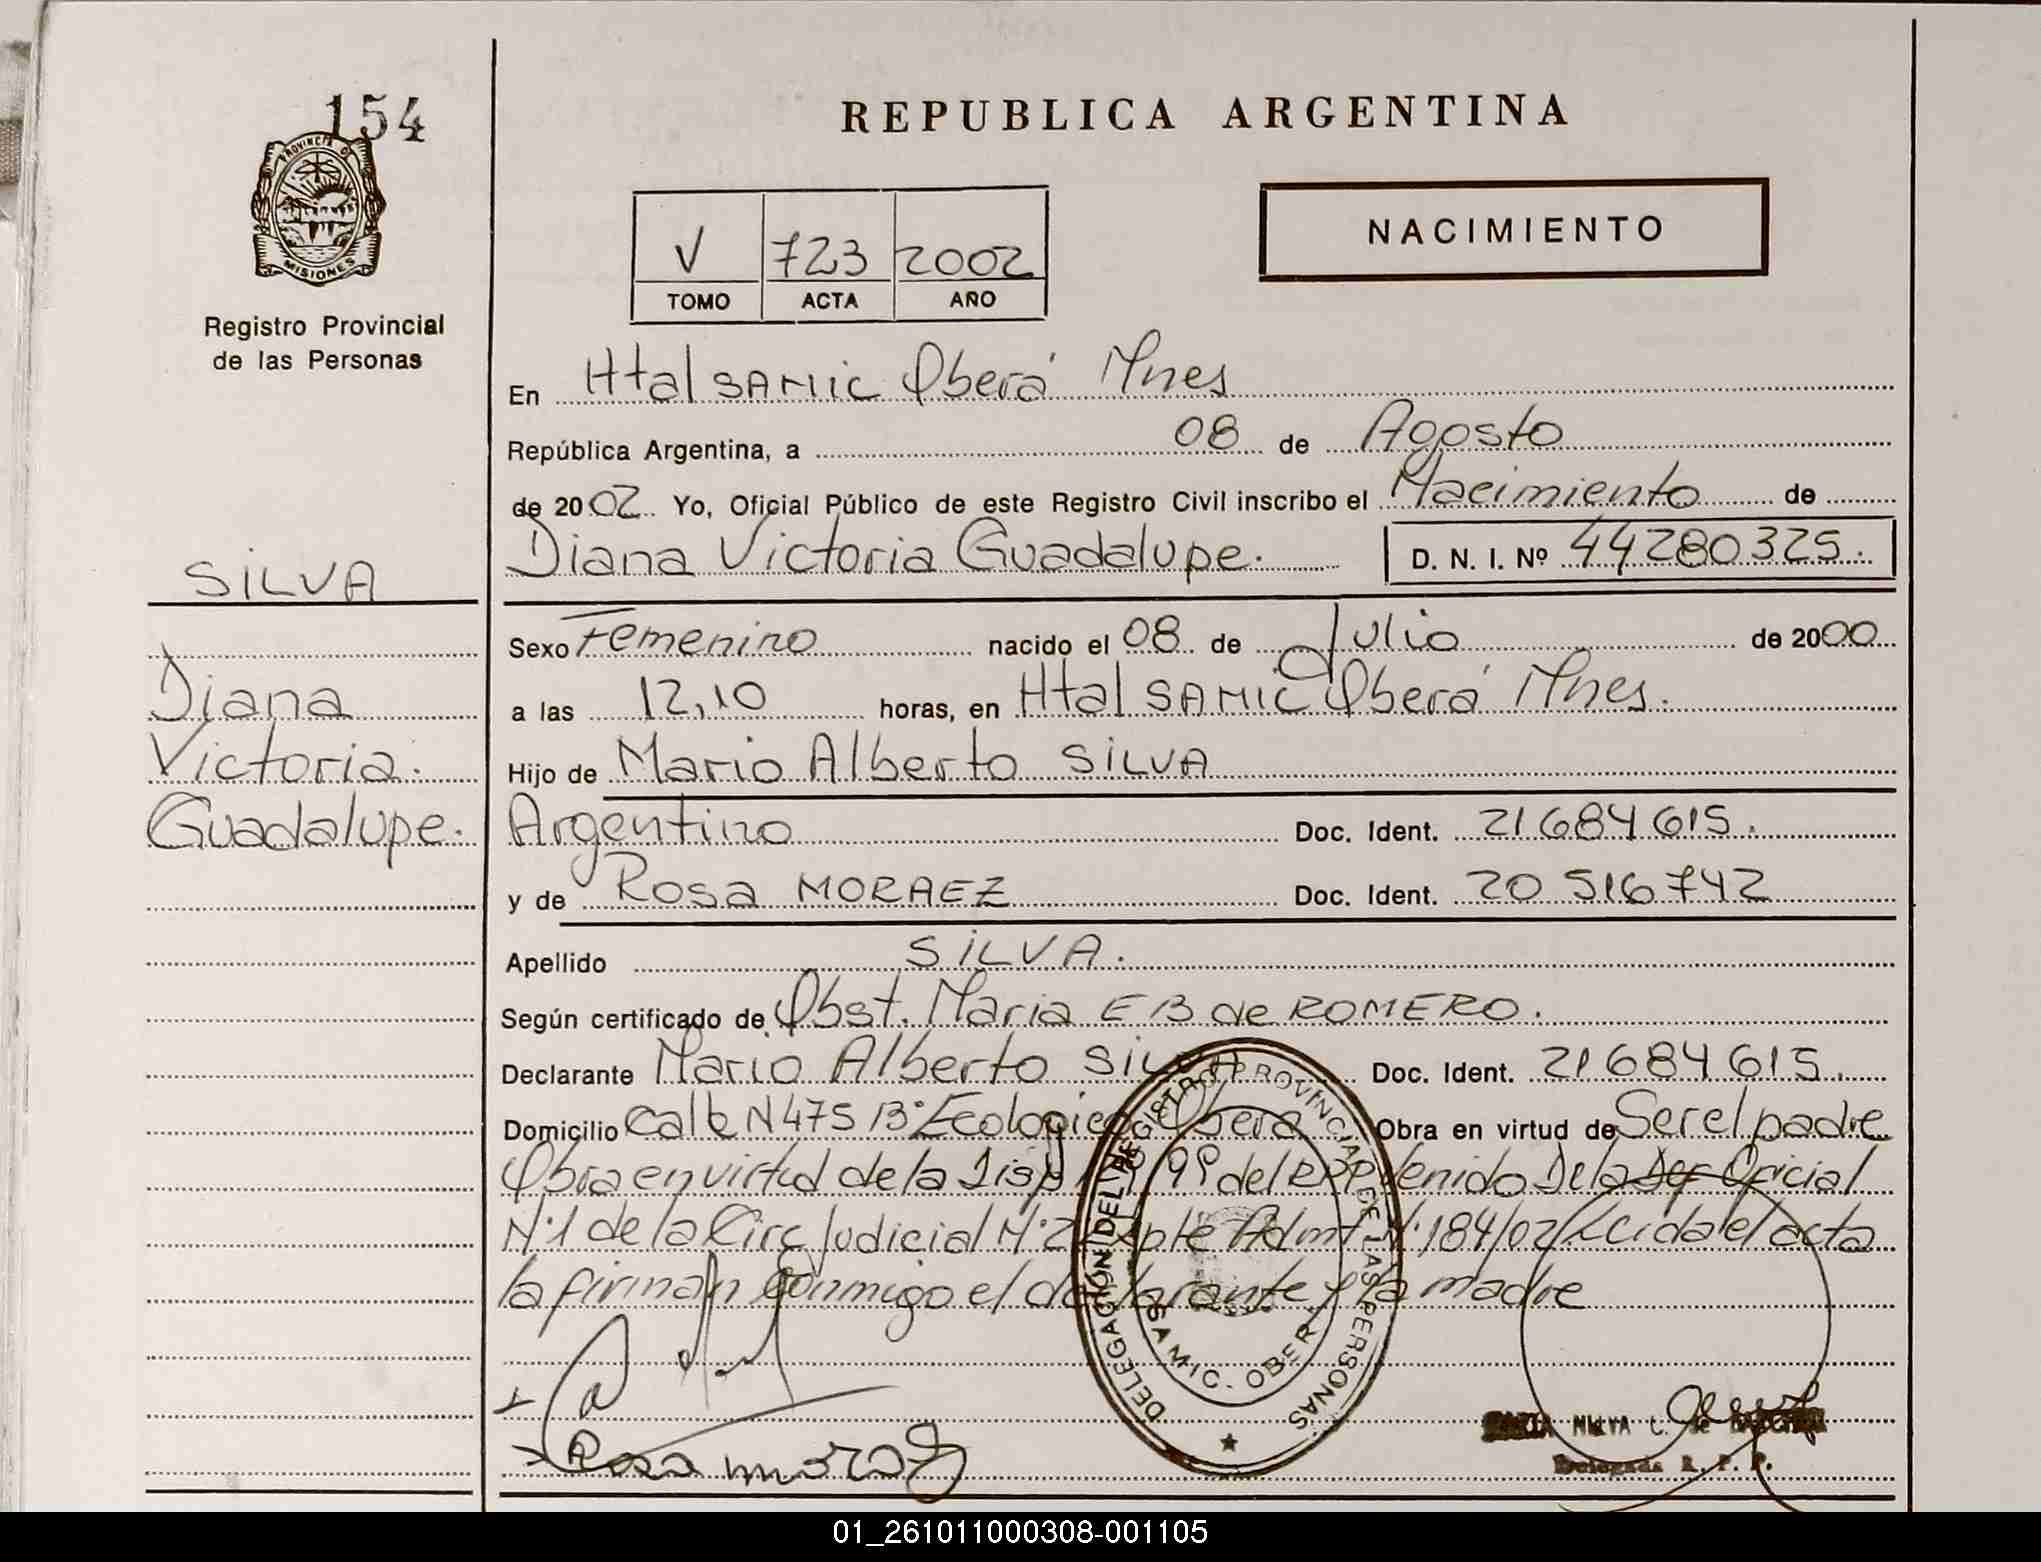 154
PROVINCIA DE
MISIONES
Registro Provincial
de las Personas
REPUBLICA ARGENTINA
V 723 2002
TOMO ACTA AÑO
NACIMIENTO
En Htal SAMIC Oberá Mnes
República Argentina, a 08 de Agosto
de 2002 Yo, Oficial Público de este Registro Civil inscribo el Nacimiento de
Diana Victoria Guadalupe. D. N. I. Nº 44280325.
SILVA
Diana
Victoria.
Guadalupe.
Sexo Femenino nacido el 08 de Julio de 2000
a las 12,10 horas, en Htal SAMIC Oberá Mnes.
Hijo de Mario Alberto SILVA
Argentino Doc. Ident. 21 684 615.
y de Rosa MORAEZ Doc. Ident. 20 516 742
Apellido SILVA.
Según certificado de Obst. Maria E B de ROMERO.
Declarante Mario Alberto SILVA Doc. Ident. 21 684 615.
Domicilio Calle N 475 Bº Ecologico Oberá Obra en virtud de Ser el padre
Obra en virtud de la Disp 99 del RPP venido De la Def Oficial
Nº1 de la Circ Judicial Nº2 Expte Admt Nº 184/02 Leida el acta
la firman conmigo el declarante y la madre
DELEGACIÓN DEL REGISTRO PROVINCIAL DE LAS PERSONAS
SAMIC - OBERA
Rosa moraez
Delegada R. P. P.
01_261011000308-001105